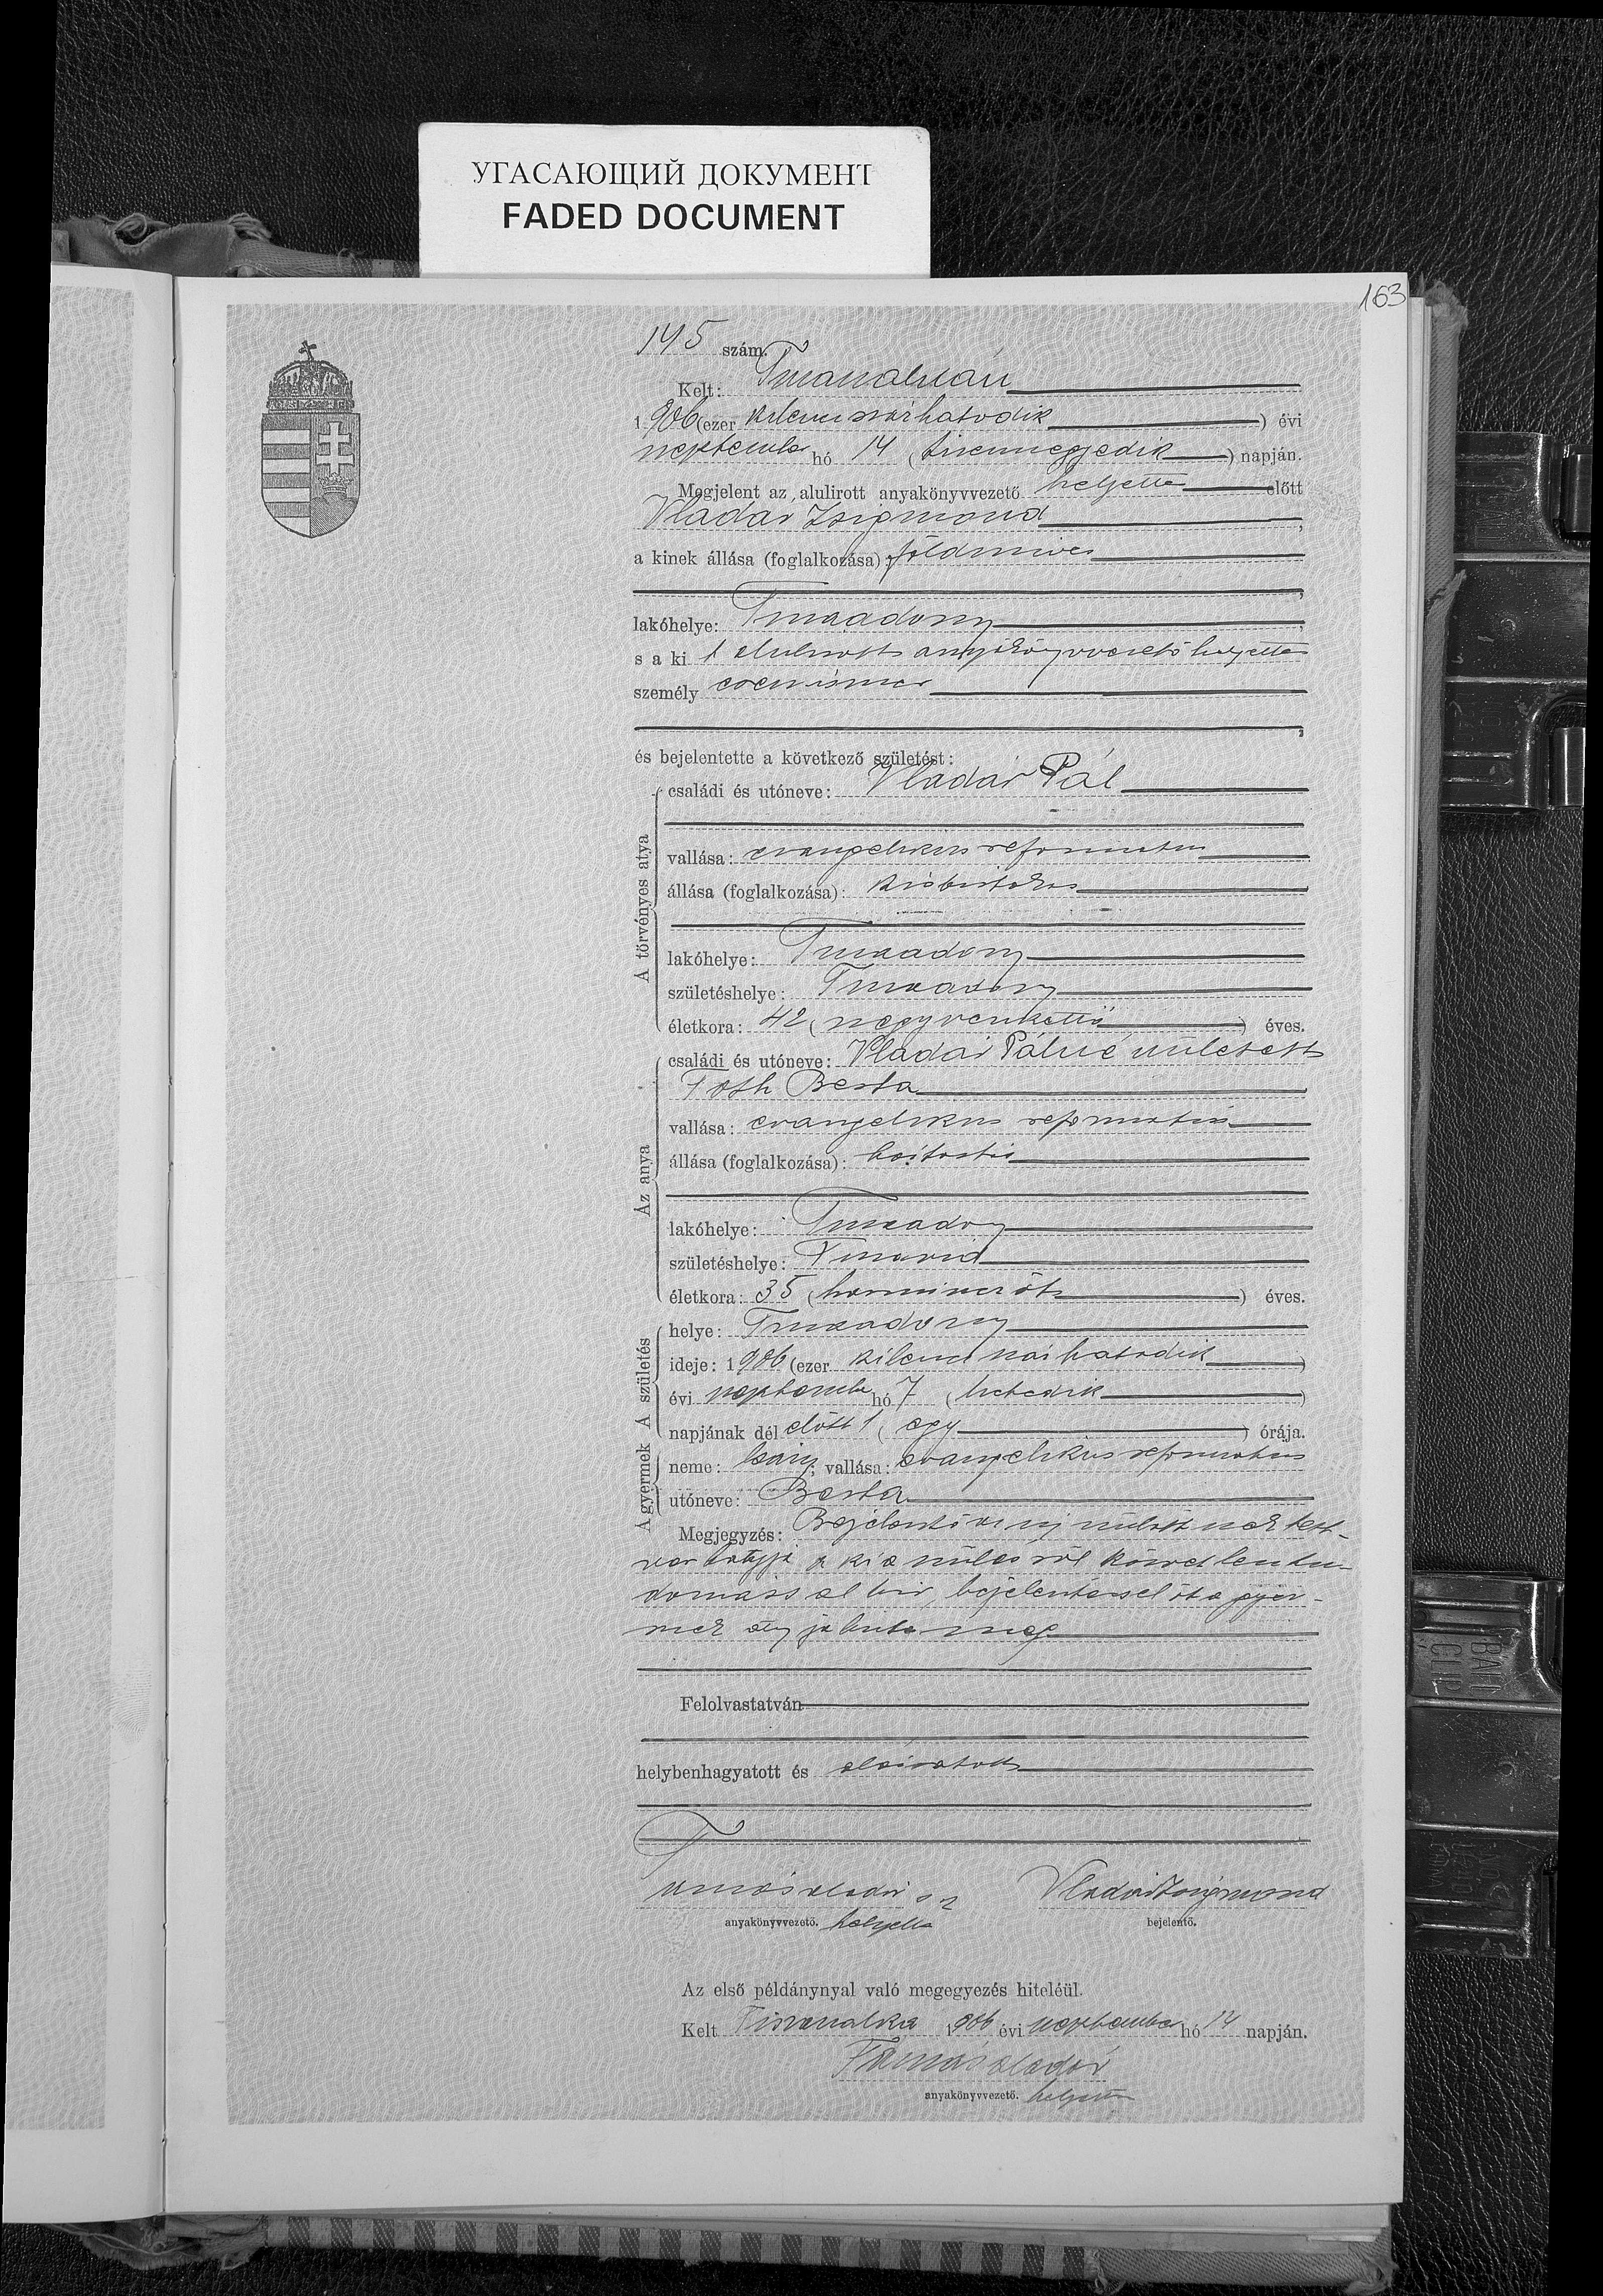 УГАСАЮЩИЙ ДОКУМЕНТ
FADED DOCUMENT
163
145 szám.
Kelt: Tiszasalkán
1906 (ezer kilenczszázhatodik) évi
szeptember hó 14 (tizennegyedik) napján.
Megjelent az alulirott anyakönyvvezető helyettes előtt
Vladár Zsigmond,
a kinek állása (foglalkozása): földmives
lakóhelye: Tiszaadony,
s a ki t alulirott anyakönyvvezető helyettes
személy esen ismer
és bejelentette a következő születést:
A törvényes atya
családi és utóneve: Vladár Pál
vallása: evangelikus reformatus
állása (foglalkozása): kisbirtokos
lakóhelye: Tiszaadony
születéshelye: Tiszaadony
életkora: 42 (negyvenkettő) éves.
Az anya
családi és utóneve: Vladár Pálné született
Tóth Berta
vallása: evangelikus reformatus
állása (foglalkozása): háztartás
lakóhelye: Tiszaadony
születéshelye: Tiszavid
életkora: 35 (harminczöt) éves.
A születés
helye: Tiszaadony
ideje: 1906 (ezer kilenczszázhatodik)
évi szeptember hó 7 (hetedik)
napjának dél előtt 1 (egy) órája.
A gyermek
neme: leány; vallása: evangelikus reformatus
utóneve: Berta
Megjegyzés: Bejelentő az új szülött nek test-
vér bátyja a ki a szülés ről közvetlen tu-
domással bir, bejelentéssel őt a gyer-
mek atyja bizta meg
Felolvastatván
helybenhagyatott és aláiratott
Tamás Aladár
anyakönyvvezető. helyettes
Vladár Zsigmond
bejelentő.
Az első példánynyal való megegyezés hiteléül.
Kelt Tiszasalka 1906 évi szeptember hó 14 napján.
Tamás Aladár
anyakönyvvezető. helyettes